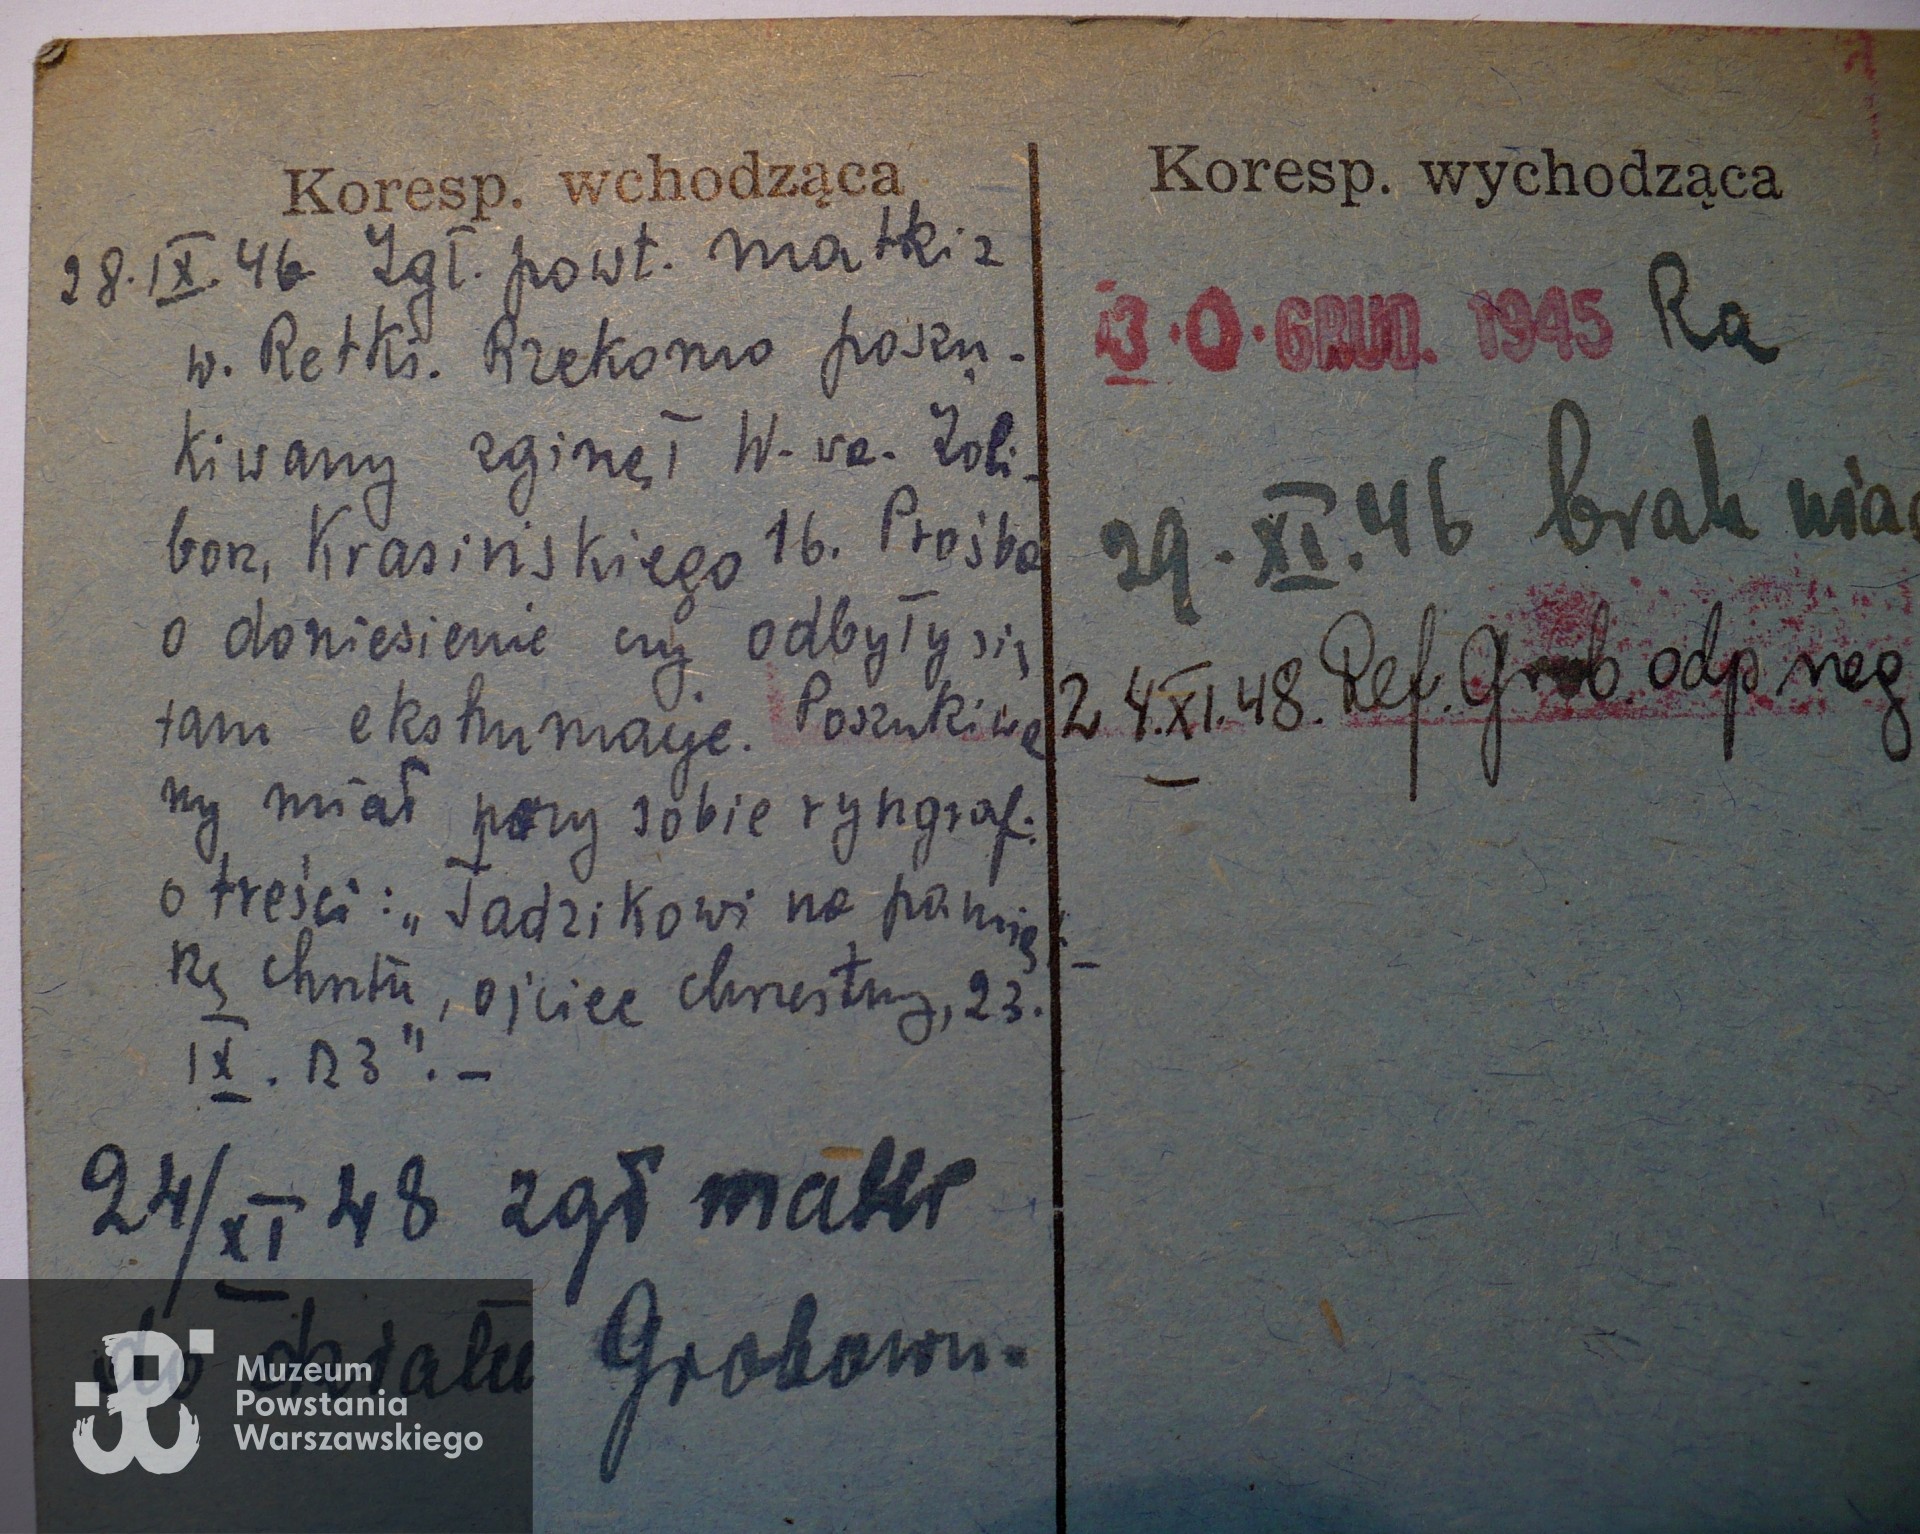 Koresp. wchodząca
28.IX.46 Zgł. powt. matki z
w. Retki. Rzekomo poszu-
kiwany zginął W-wa. Żoli-
borz, Krasińskiego 16. Prośba
o doniesienie czy odbyły się
tam ekshumacje. Poszukiwa
ny miał przy sobie ryngraf.
o treści: „Tadzikowi na pamią-
kę chrztu, ojciec chrzestny, 23.
IX. 23". -
24/XI 48 zgł matki
do działu Grobown.
Koresp. wychodząca
30. GRUD. 1945 Ra
29.XI.46 brak wiad
24.XI.48. Ref. Grob. odp neg
Muzeum
Powstania
Warszawskiego